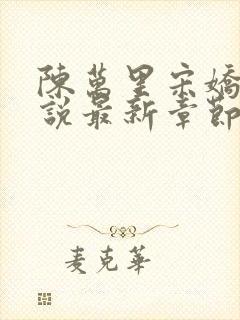 陳萬里宋嬌
說最新章節
麥克華